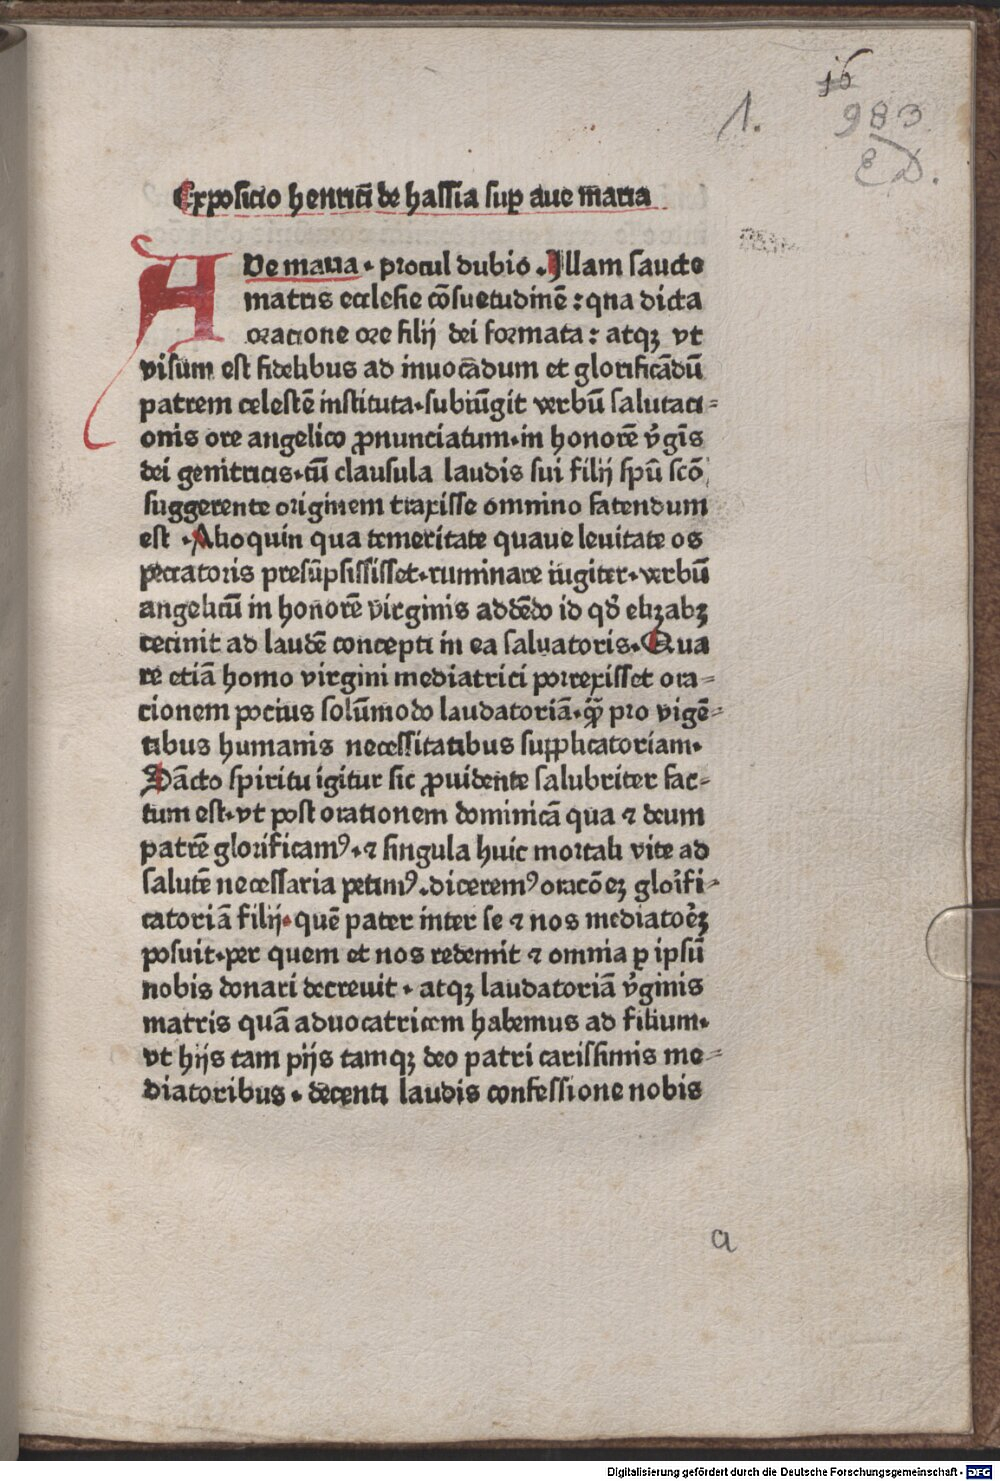 16
1. 983
ED.
Exposicio henrici de hassia sup aue maria
AVe maria . procul dubio . Illam sancte
matris ecclesie cōsuetudinē : qna dicta
oracione ore filij dei formata : atqꝫ vt
visum est fidelibus ad inuocādum et glorificādū
patrem celestē instituta . subiūgit verbū salutaci⸗
onis ore angelico ꝓnunciatum . in honorē v̓gīs
dei genitricis . cū clausula laudis sui filij spū scō
suggerente originem traxisse omnino fatendum
est . Alioquin qua temeritate quaue leuitate os
peccatoris presūpsississet . ruminare iugiter . verbū
angelicū in honorē virginis addēdo id qd̓ elizabꝫ
cecinit ad laudē concepti in ea saluatoris . Qua
re etiā homo virgini mediatrici porrexisset ora⸗
cionem pocius solūmodo laudatoriā . q̄ȝ pro vigē⸗
tibus humanis necessitatibus supplicatoriam .
Sācto spiritu igitur sic ꝓuidente salubriter fac⸗
tum est . vt post orationem dominicā qua ⁊ deum
patrē glorificamꝰ . ⁊ singula huic mortali vite ad
salutē necessaria petimꝰ . diceremꝰ oracōeꝫ glorifi⸗
catoriā filij . quē pater inter se ⁊ nos mediatorēꝫ
posuit . per quem et nos redemit ⁊ omnia ꝑ ipsū
nobis donari decreuit . atqꝫ laudatoriā v̓ginis
matris quā aduocatricem habemus ad filium .
vt hijs tam pijs tamqꝫ deo patri carissimis me⸗
diatoribus . decenti laudis confessione nobis
a
Digitalisierung gefördert durch die Deutsche Forschungsgemeinschaft - DFG